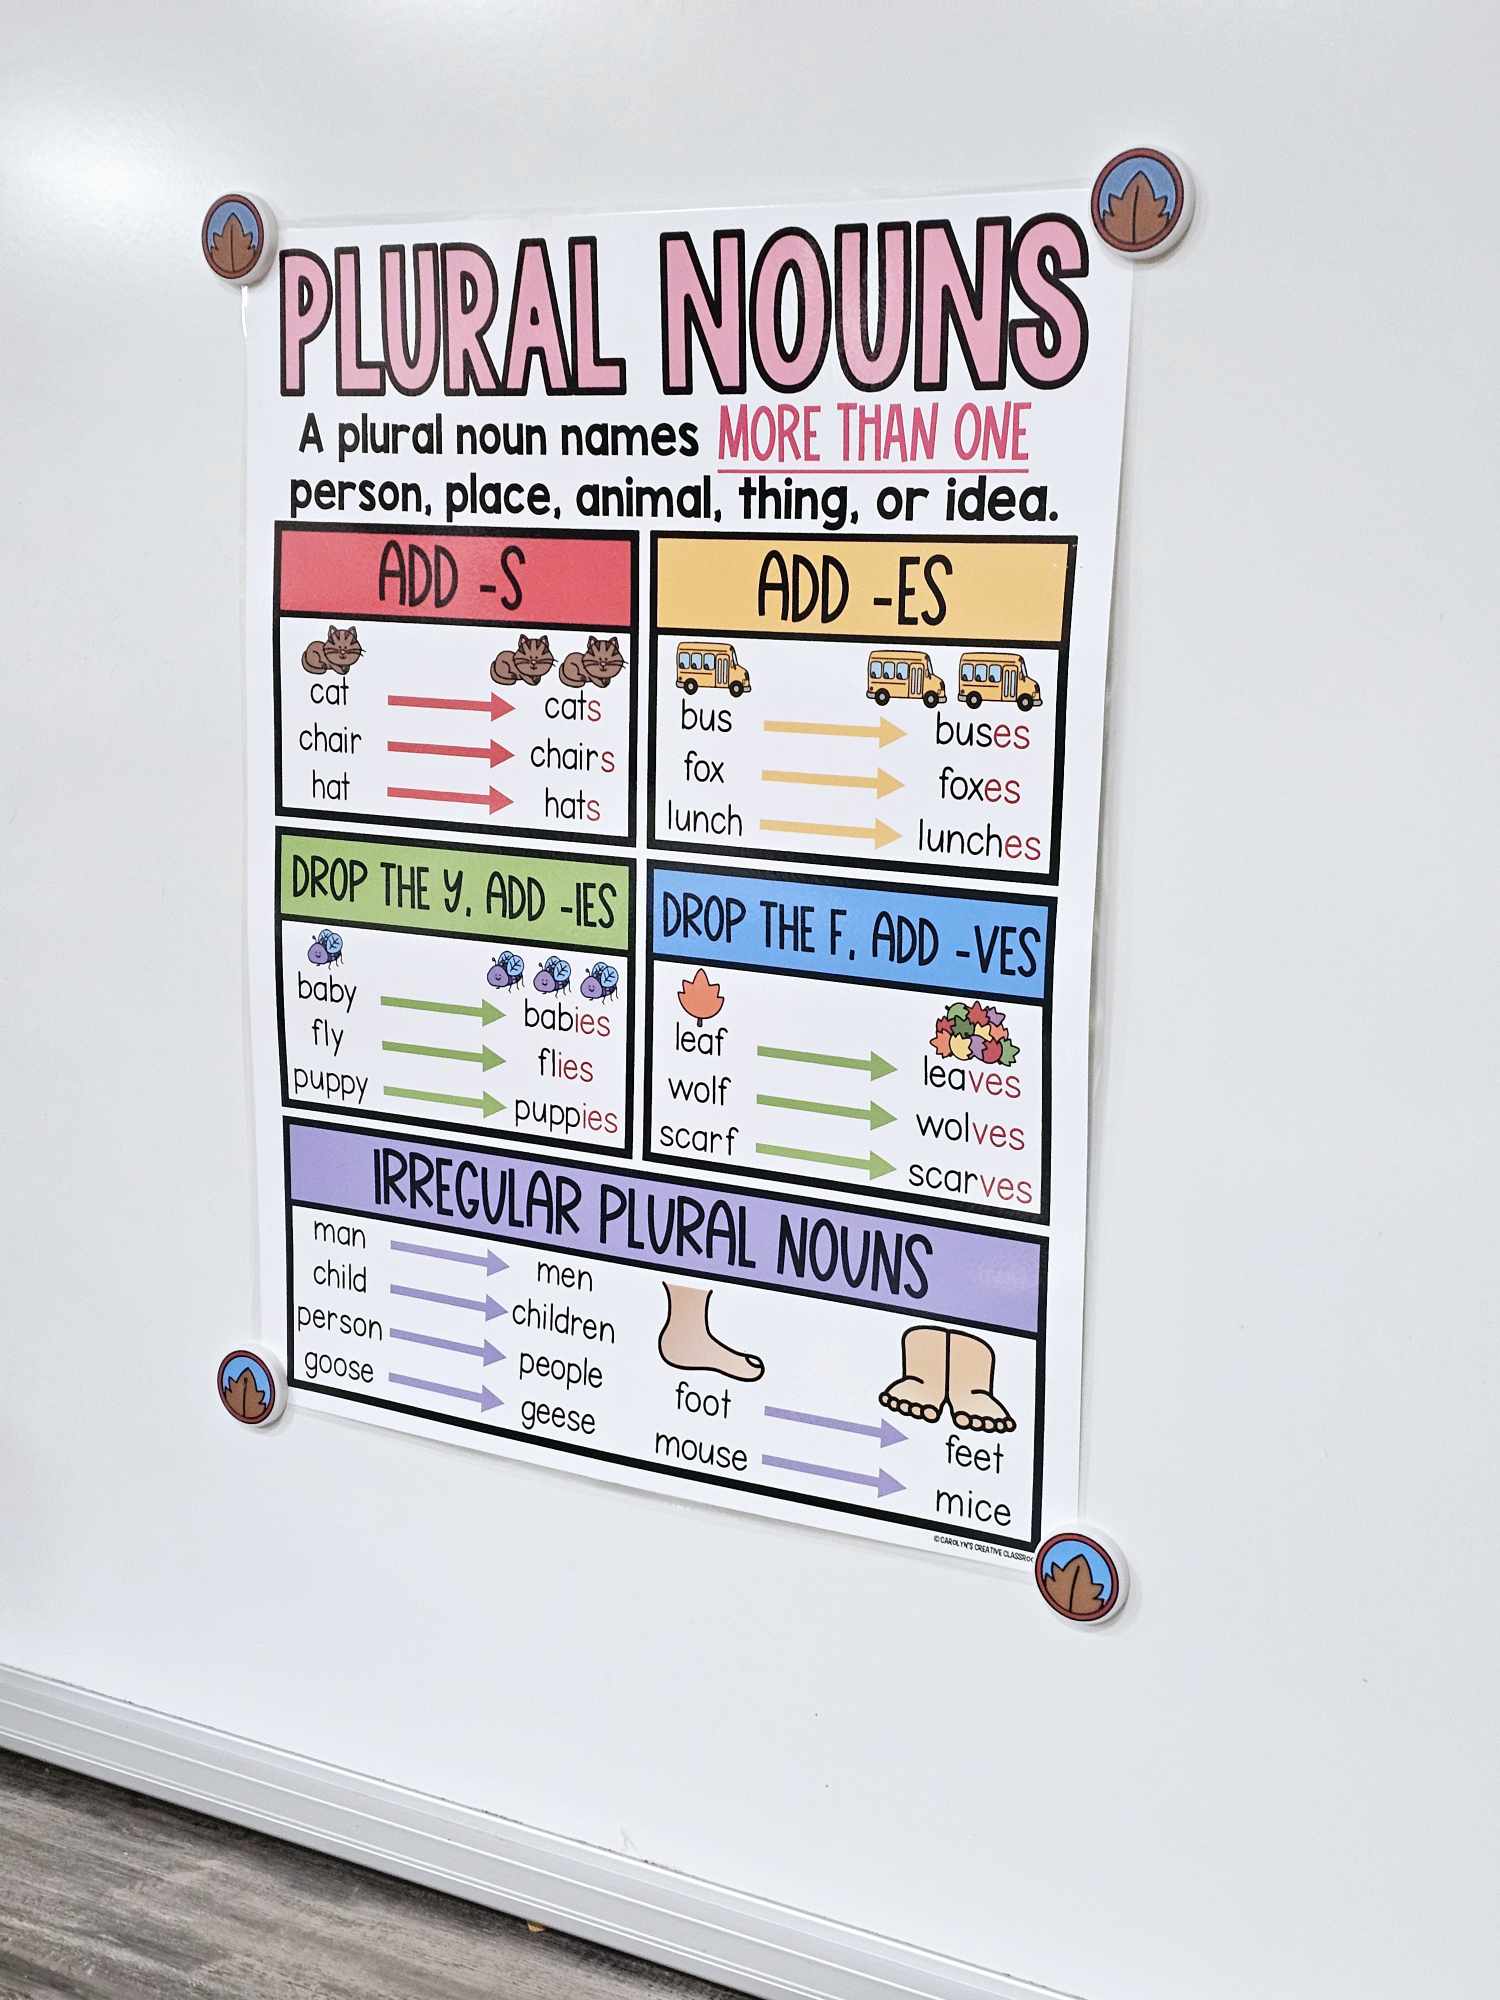 PLURAL NOUNS
A plural noun names MORE THAN ONE
person, place, animal, thing, or idea.
ADD -S
cat cats
chair chairs
hat hats
ADD -ES
bus buses
fox foxes
lunch lunches
DROP THE Y, ADD -IES
baby babies
fly flies
puppy puppies
DROP THE F, ADD -VES
leaf leaves
wolf wolves
scarf scarves
IRREGULAR PLURAL NOUNS
man men
child children
person people
goose geese
foot feet
mouse mice
©CAROLYN'S CREATIVE CLASSRO